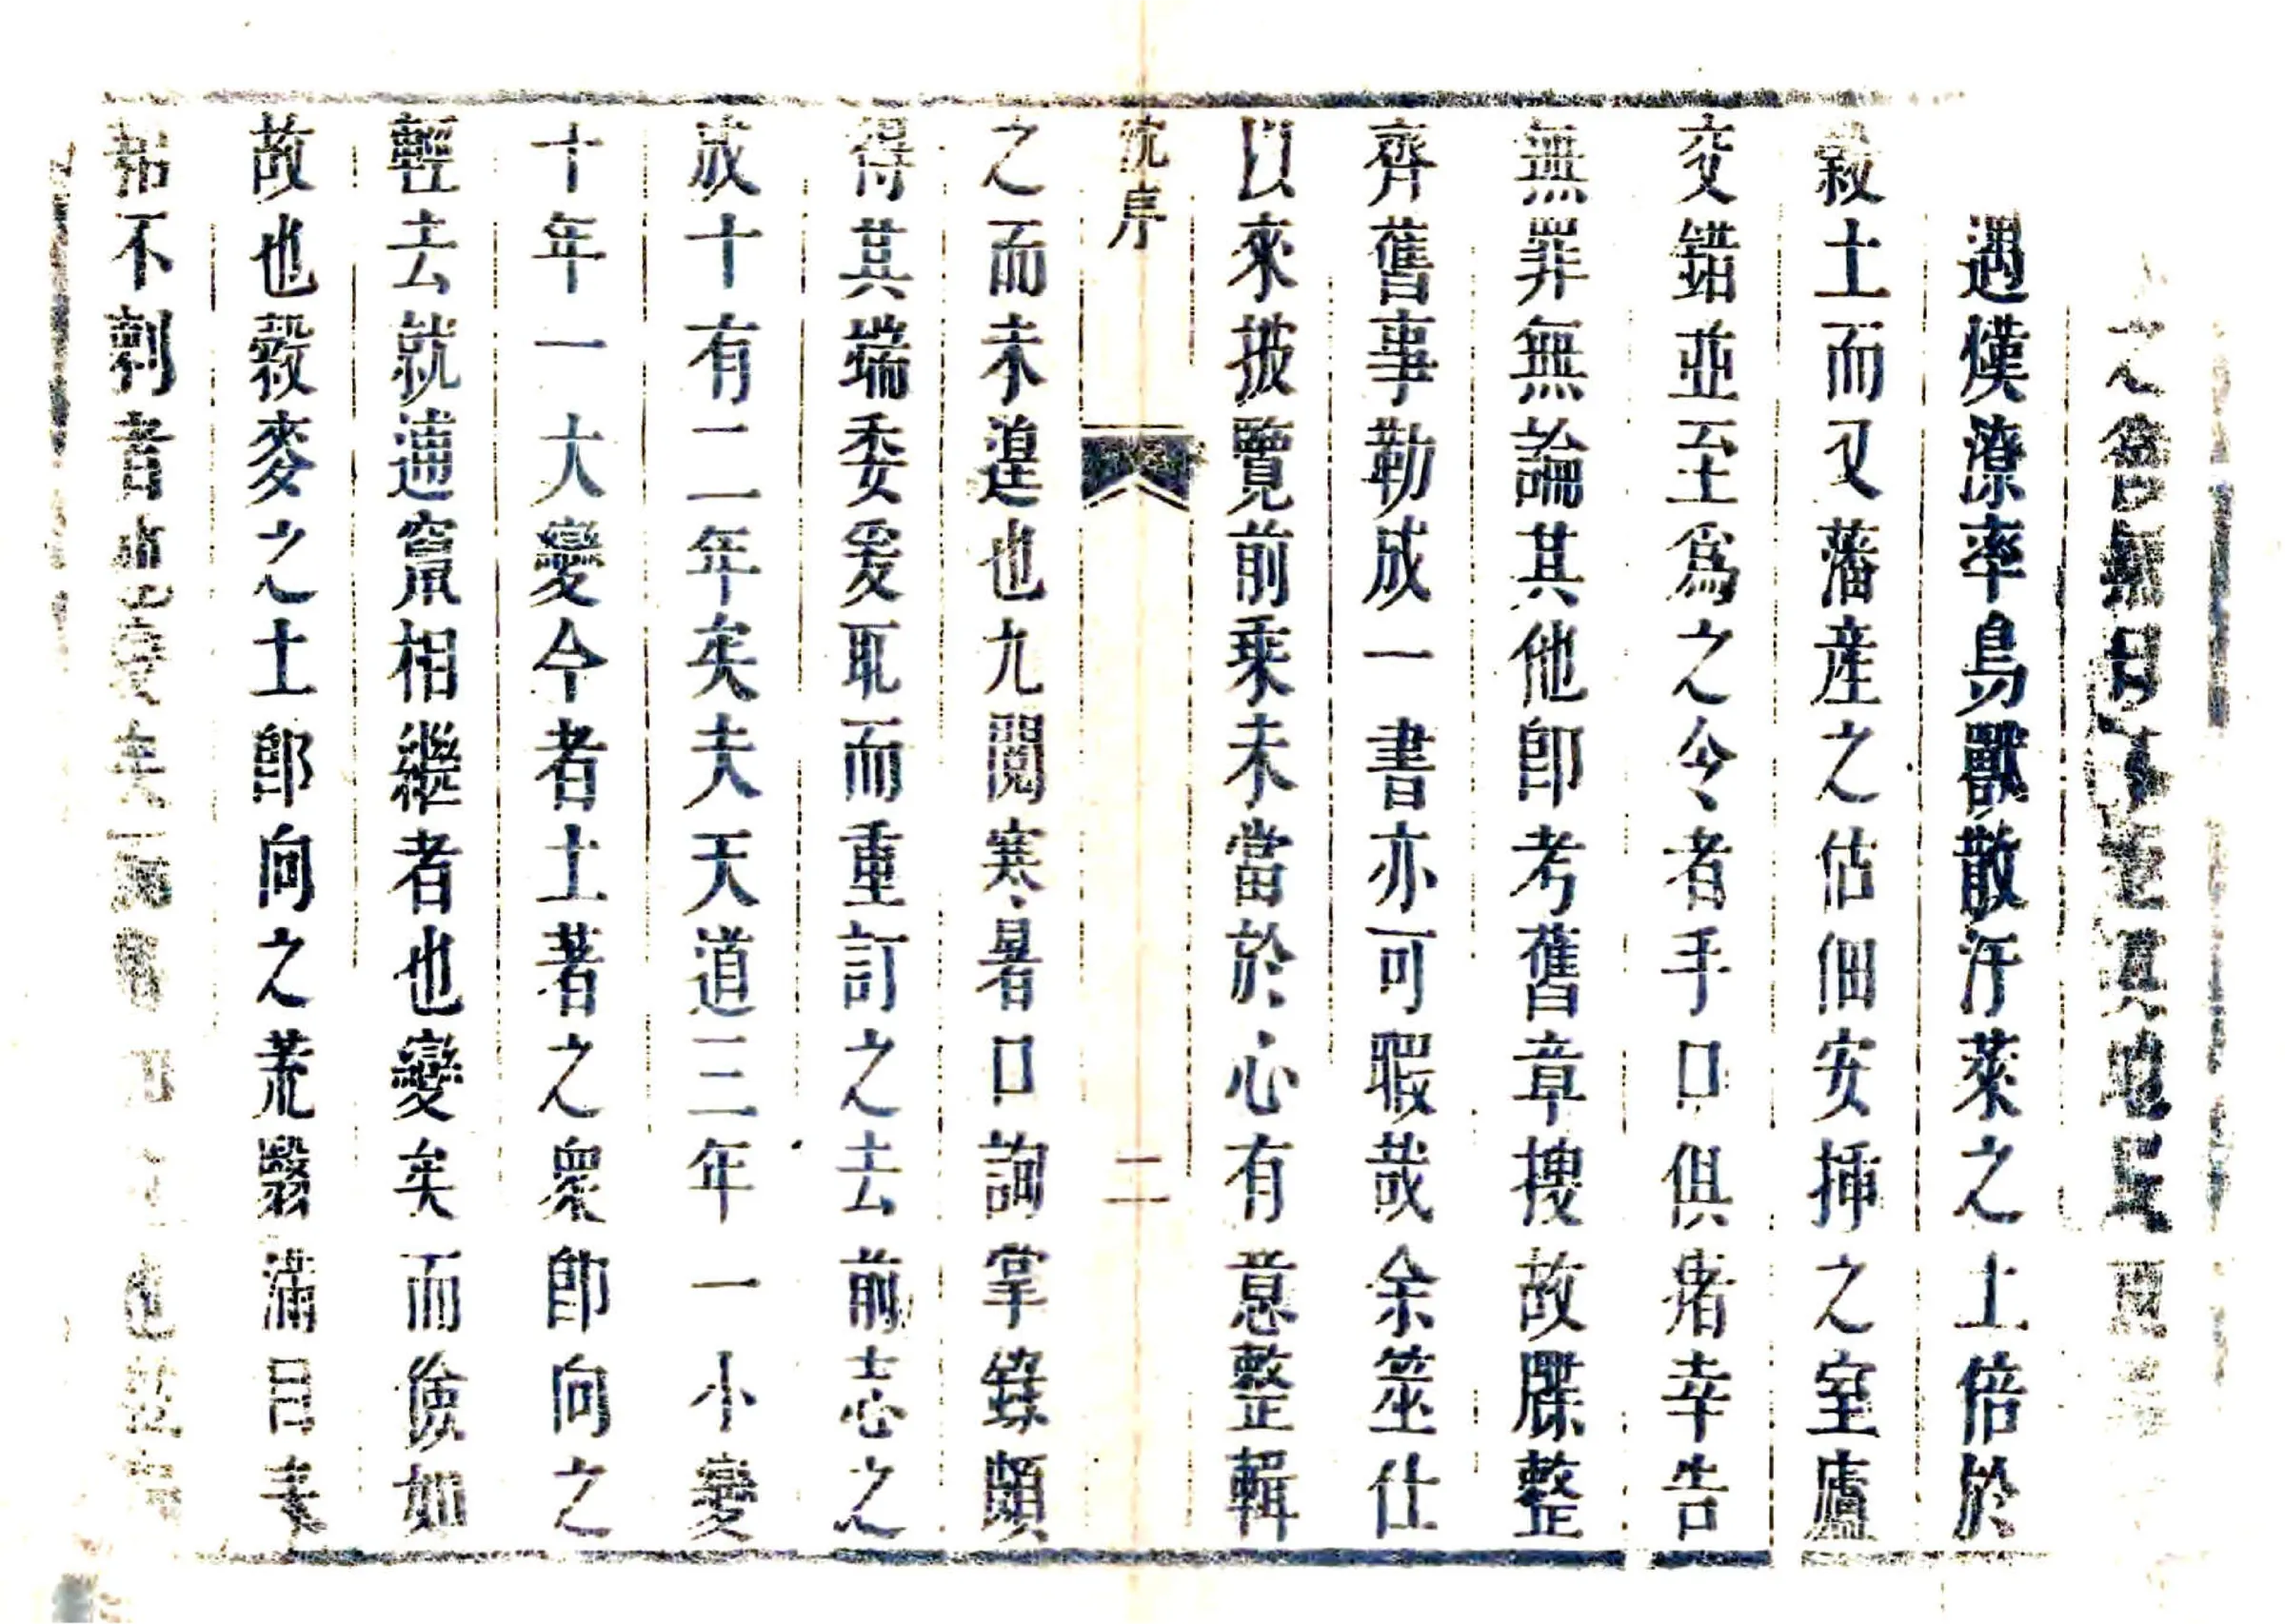 之
遇熯潦率鳥獸散汙萊之土倍於
穀土而又藩産之估佃安揷之室廬
交錯並至爲之令者手口俱瘏幸告
無罪無論其他卽考舊章搜故牒整
齊舊事勒成一書亦可暇哉余筮仕
以來披覽前乘未當於心有意整輯
沈序
二
之而未遑也九閱寒暑口詢掌錄頗
得其端委爰取而重訂之去前志之
成十有二年矣夫天道三年一小變
十年一大變今者土著之衆卽向之
輕去就逋竄相繼者也變矣而儉如
故也穀麥之土卽向之荒翳滿目耒
耜不剌者也變矣